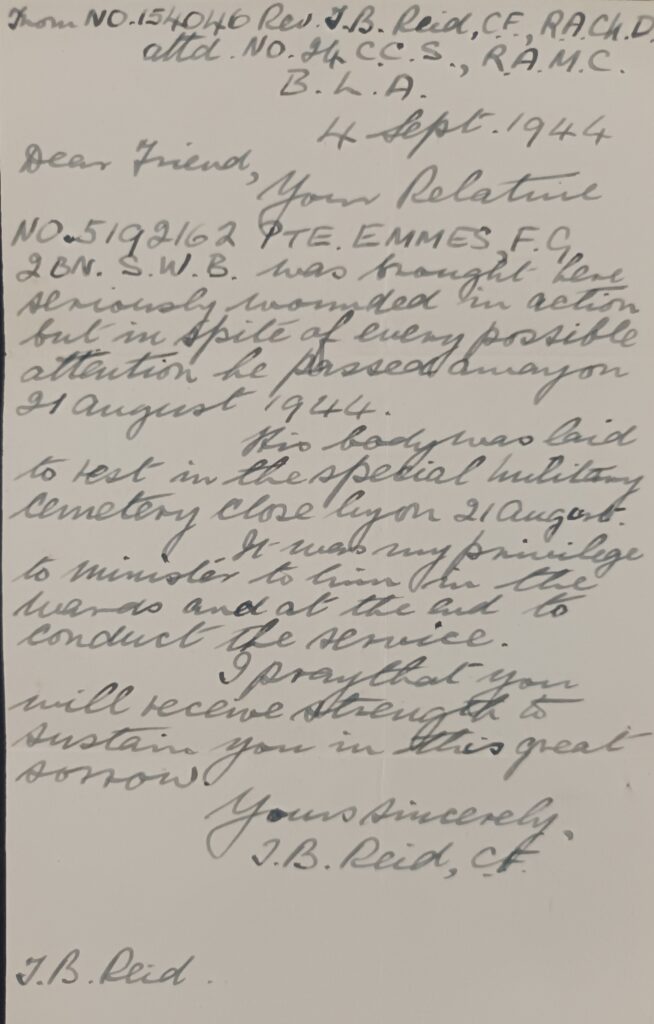 From NO.154046 Rev. J.B. Reid, CF., R.A.Ch.D.
attd. NO. 24 C.C.S., R.A.M.C.
B. L. A.
4 Sept. 1944
Dear Friend,
Your Relative
NO.5192162 PTE. EMMES, F.G,
2 BN. S.W.B. was brought here
seriously wounded in action
but in spite of every possible
attention he passed away on
21 August 1944.
His body was laid
to rest in the special military
cemetery close by on 21 August.
It was my privilege
to minister to him in the
wards and at the end to
conduct the service.
I pray that you
will receive strength to
sustain you in this great
sorrow.
Yours sincerely,
J.B. Reid, C.F.
J.B. Reid.